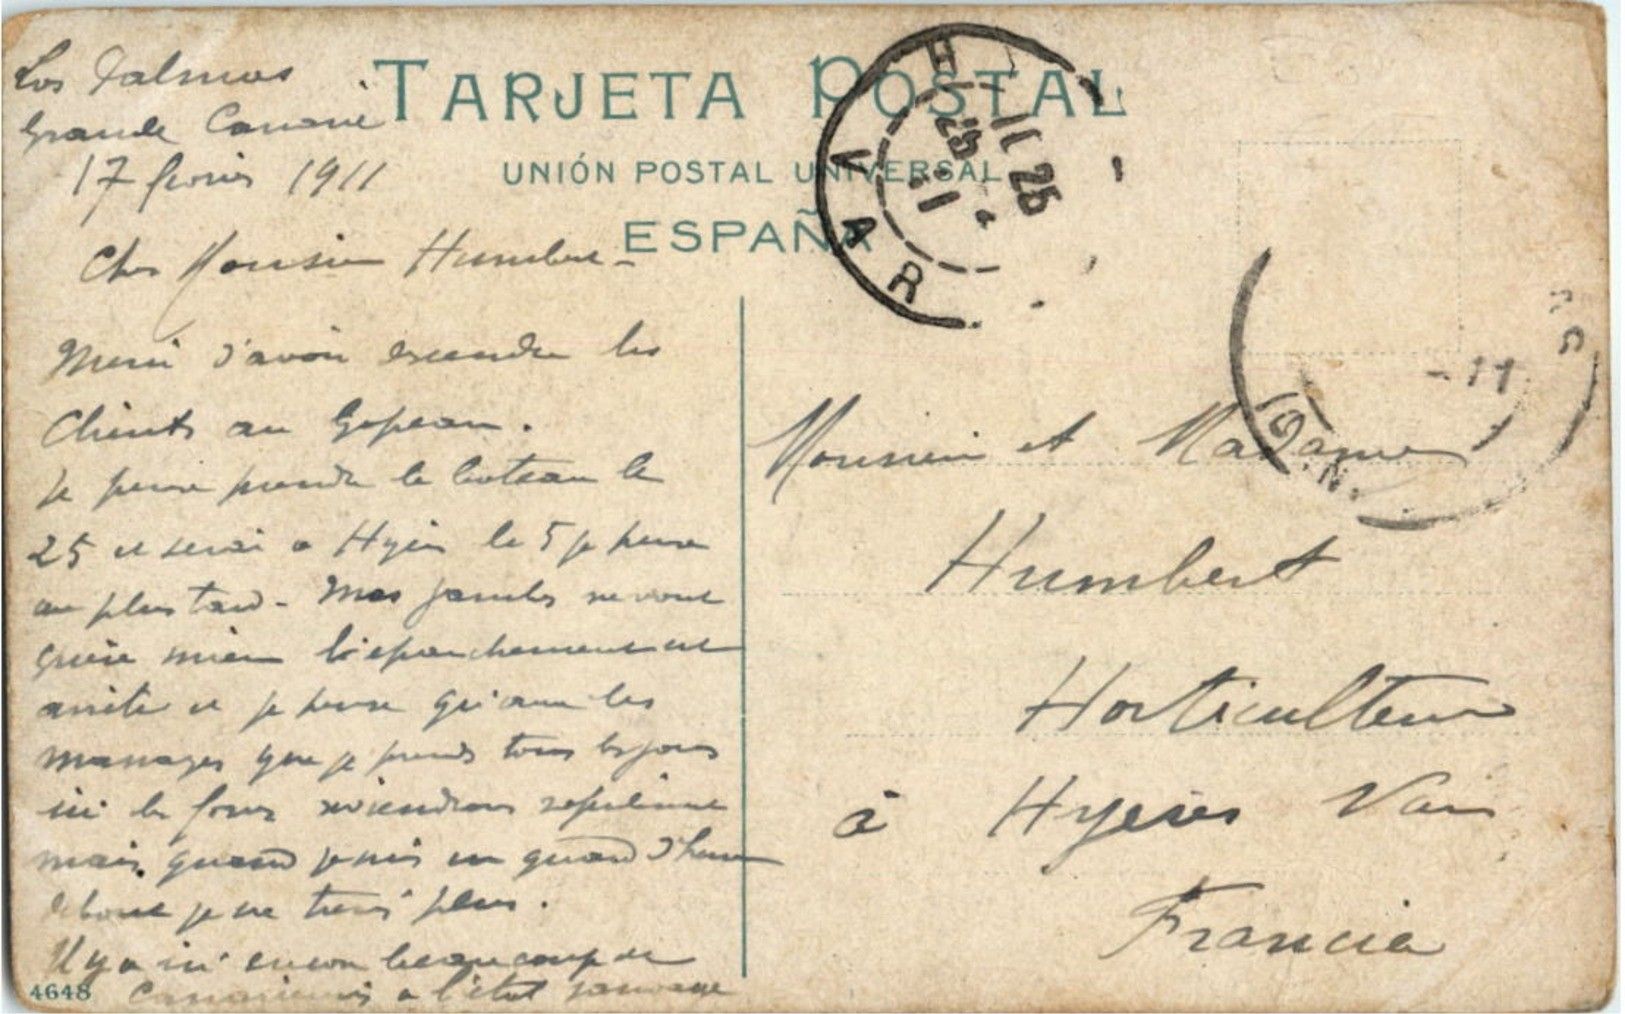 TARJETA POSTAL
UNIÓN POSTAL UNIVERSAL
ESPAÑA
Las Palmas
Grande Canarie
17 février 1911
Cher Monsieur Humbert -
Merci d'avoir les
Clients au
Je pense prendre le bateau le
25 et serai a Hyères le 5 je pense
au plus tard - Mes jambes ne vont
guère mieux l'épanchement est
arrêté et je pense qu'avec les
massages que je prends tous les jours
ici les forces reviendront
mais quand je suis un quart d'heure
debout je ne tiens plus.
Il y a ici encore beaucoup de
Canaries a l'état sauvage
4648
Monsieur et Madame
Humbert
Horticulteur
à Hyères Var
Francia
VAR
H
11 25
25
11
- 11